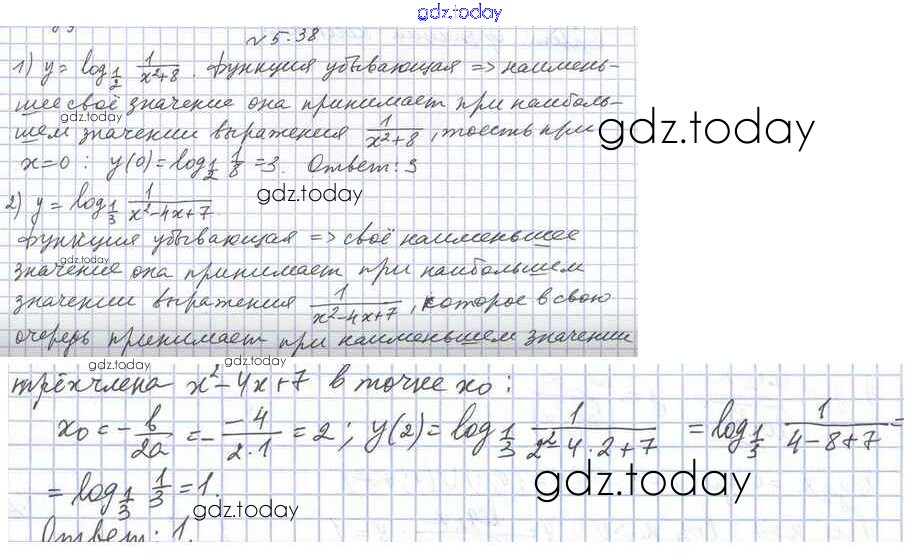 gdz.today
№ 5.38
1) y = log_{1/2} 1/(x²+8). Функция убывающая => наимень-
шее своё значение она принимает при наиболь-
gdz.today
шем значении выражения 1/(x²+8), тоесть при
gdz.today
x=0 : y(0) = log_{1/2} 1/8 = 3. Ответ: 3
gdz.today
gdz.today
2) y = log_{1/3} 1/(x²-4x+7)
Функция убывающая => своё наименьшее
значение она принимает при наибольшем
gdz.today
gdz.today
значении выражения 1/(x²-4x+7), которое в свою
очередь принимает при наименьшем значении
gdz.today
трёхчлена x²-4x+7 в точке x₀ :
x₀ = -b/2a = - -4/(2·1) = 2; y(2) = log_{1/3} 1/(2²-4·2+7) = log_{1/3} 1/(4-8+7) =
= log_{1/3} 1/3 = 1.
gdz.today
gdz.today
Ответ: 1.